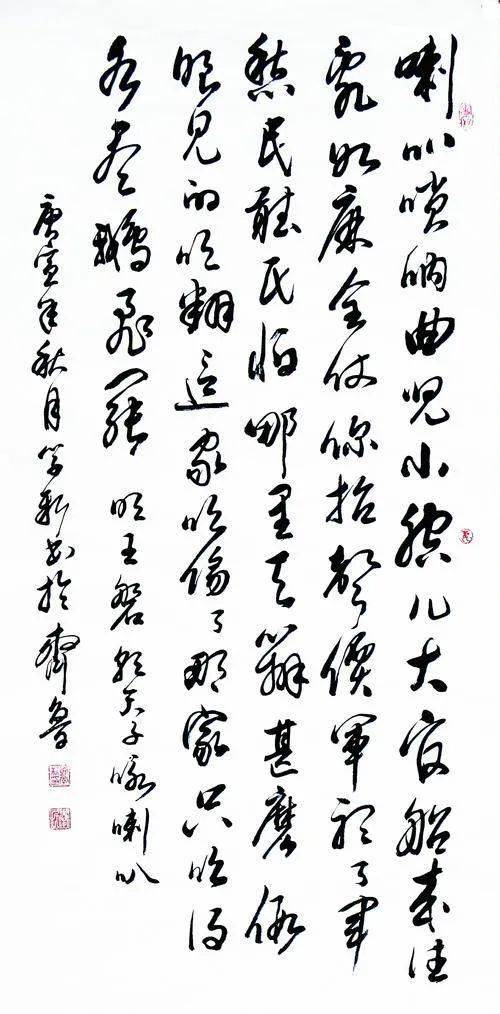 喇叭嗩吶曲児小腔儿大官船来往
乱如麻全仗你抬聲價軍听了軍
愁民聽民怕哪里去辨甚麼假
眼見的吹翻這家吹傷了那家只吹得
水盡鵝飛罷 明王磐朝天子咏喇叭
庚寅年秋月学新书於齊魯